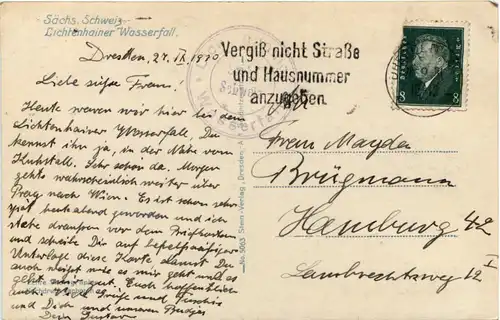 Sächs. Schweiz
Lichtenhainer Wasserfall.
Dresden, 27. IX. 1930
Liebe süße Frau!
Heute waren wir hier bei dem
Lichtenhainer Wasserfall. Du
kennst ihn ja, in der Nähe vom
Kuhstall. Sehr schön da. Morgen
gehts wahrscheinlich weiter über
Prag nach Wien. Es ist schon sehr
spät heut abend geworden und ich
stehe draußen vor dem Briefkasten
und schreibe Dir auf
Unterlage diese Karte damit Du
weißt wie es mir geht
geht es Euch hoffentlich
auch. Viele Grüße und
und Dich und unseren
Dein Gustav
Vergiß nicht Straße
und Hausnummer
anzugeben
Wasserfall
8 8
No. 5063 Stern-Verlag, Dresden
Frau Magda
Brügmann
Hamburg
Lambrechtsweg 12 I